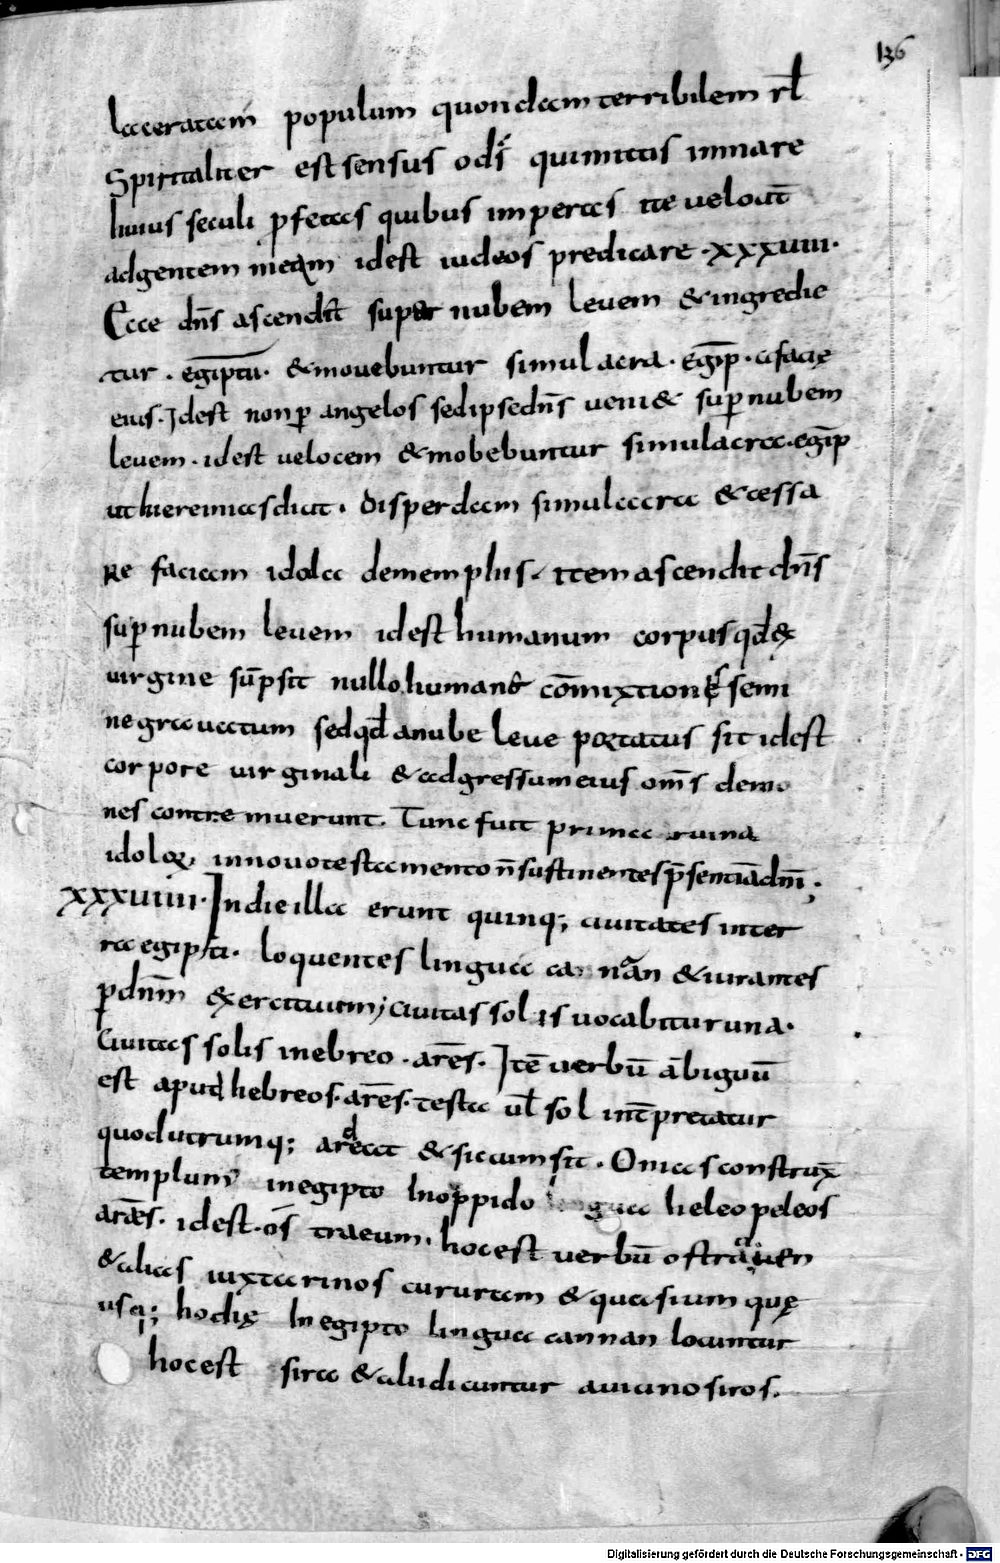 136
laceratam populum quondam terribilem rl̄
Spiritaliter est sensus o dī qui mittis in mare
huius seculi p̄fetas quibus imperas ite velocit̄
ad gentem meam idest iudeos predicare · xxxviii ·
Ecce dn̄s ascendit super nubem levem & ingredie
tur · egiptū · & movebuntur simulacra · egip̄ · a facię
eius · Idest non p̄ angelos sed ipse dn̄s veni& sup̄ nubem
levem · idest velocem & mobebuntur simulacra · egip̄
ut hieremias dicit · Disperdam simulacra & cessa
Re faciam idola de memphis · item ascendit dn̄s
sup̄ nubem levem idest humanum corpus qd̄ ex
virgine sūpsit nullo humane cōmixtionis semi
ne gravatum sed qd̄ a nube leve portatus sit idest
corpore virginali & ad gressum eius om̄s demo
nes contremuerunt. Tunc fuit prima ruina
idolorum in novo testamento n̄ sustinentes p̄sentiā dn̄i ;
xxxviiii · In die illa erunt quinq; civitates in ter
ra egipti · loquentes lingua cannan & iurantes
p̄ dn̄m exercituum; civitas solis vocabitur una ·
Civitas solis in ebreo · arēs · Itē verbū ābiguū
est apud hebreos · arēs · testa vl̄ sol int̄pretatur
quod utrumq; ardeat & siccum sit · Onias construx̄
templum in egipto In oppido lingua heleopeleos
arǣs · idest · os̄ traeum · hoc est verbū ostra
& alias iuxta rinos cururam & quasium quę
usq; hodię In egipto lingua cannan locuntur
hoc est sira & aludicuntur a vicino siros.
Digitalisierung gefördert durch die Deutsche Forschungsgemeinschaft - DFG